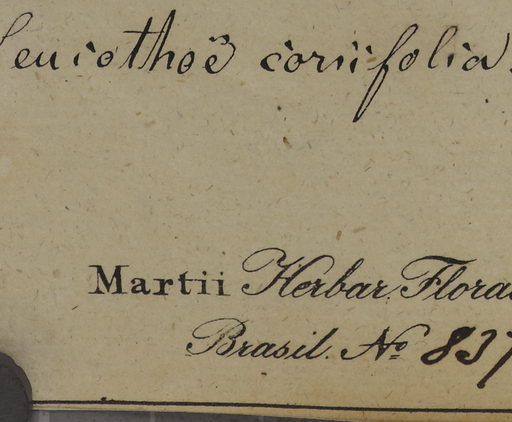 Leucothoë coriifolia
Martii Herbar. Florae
Brasil. Nº 837